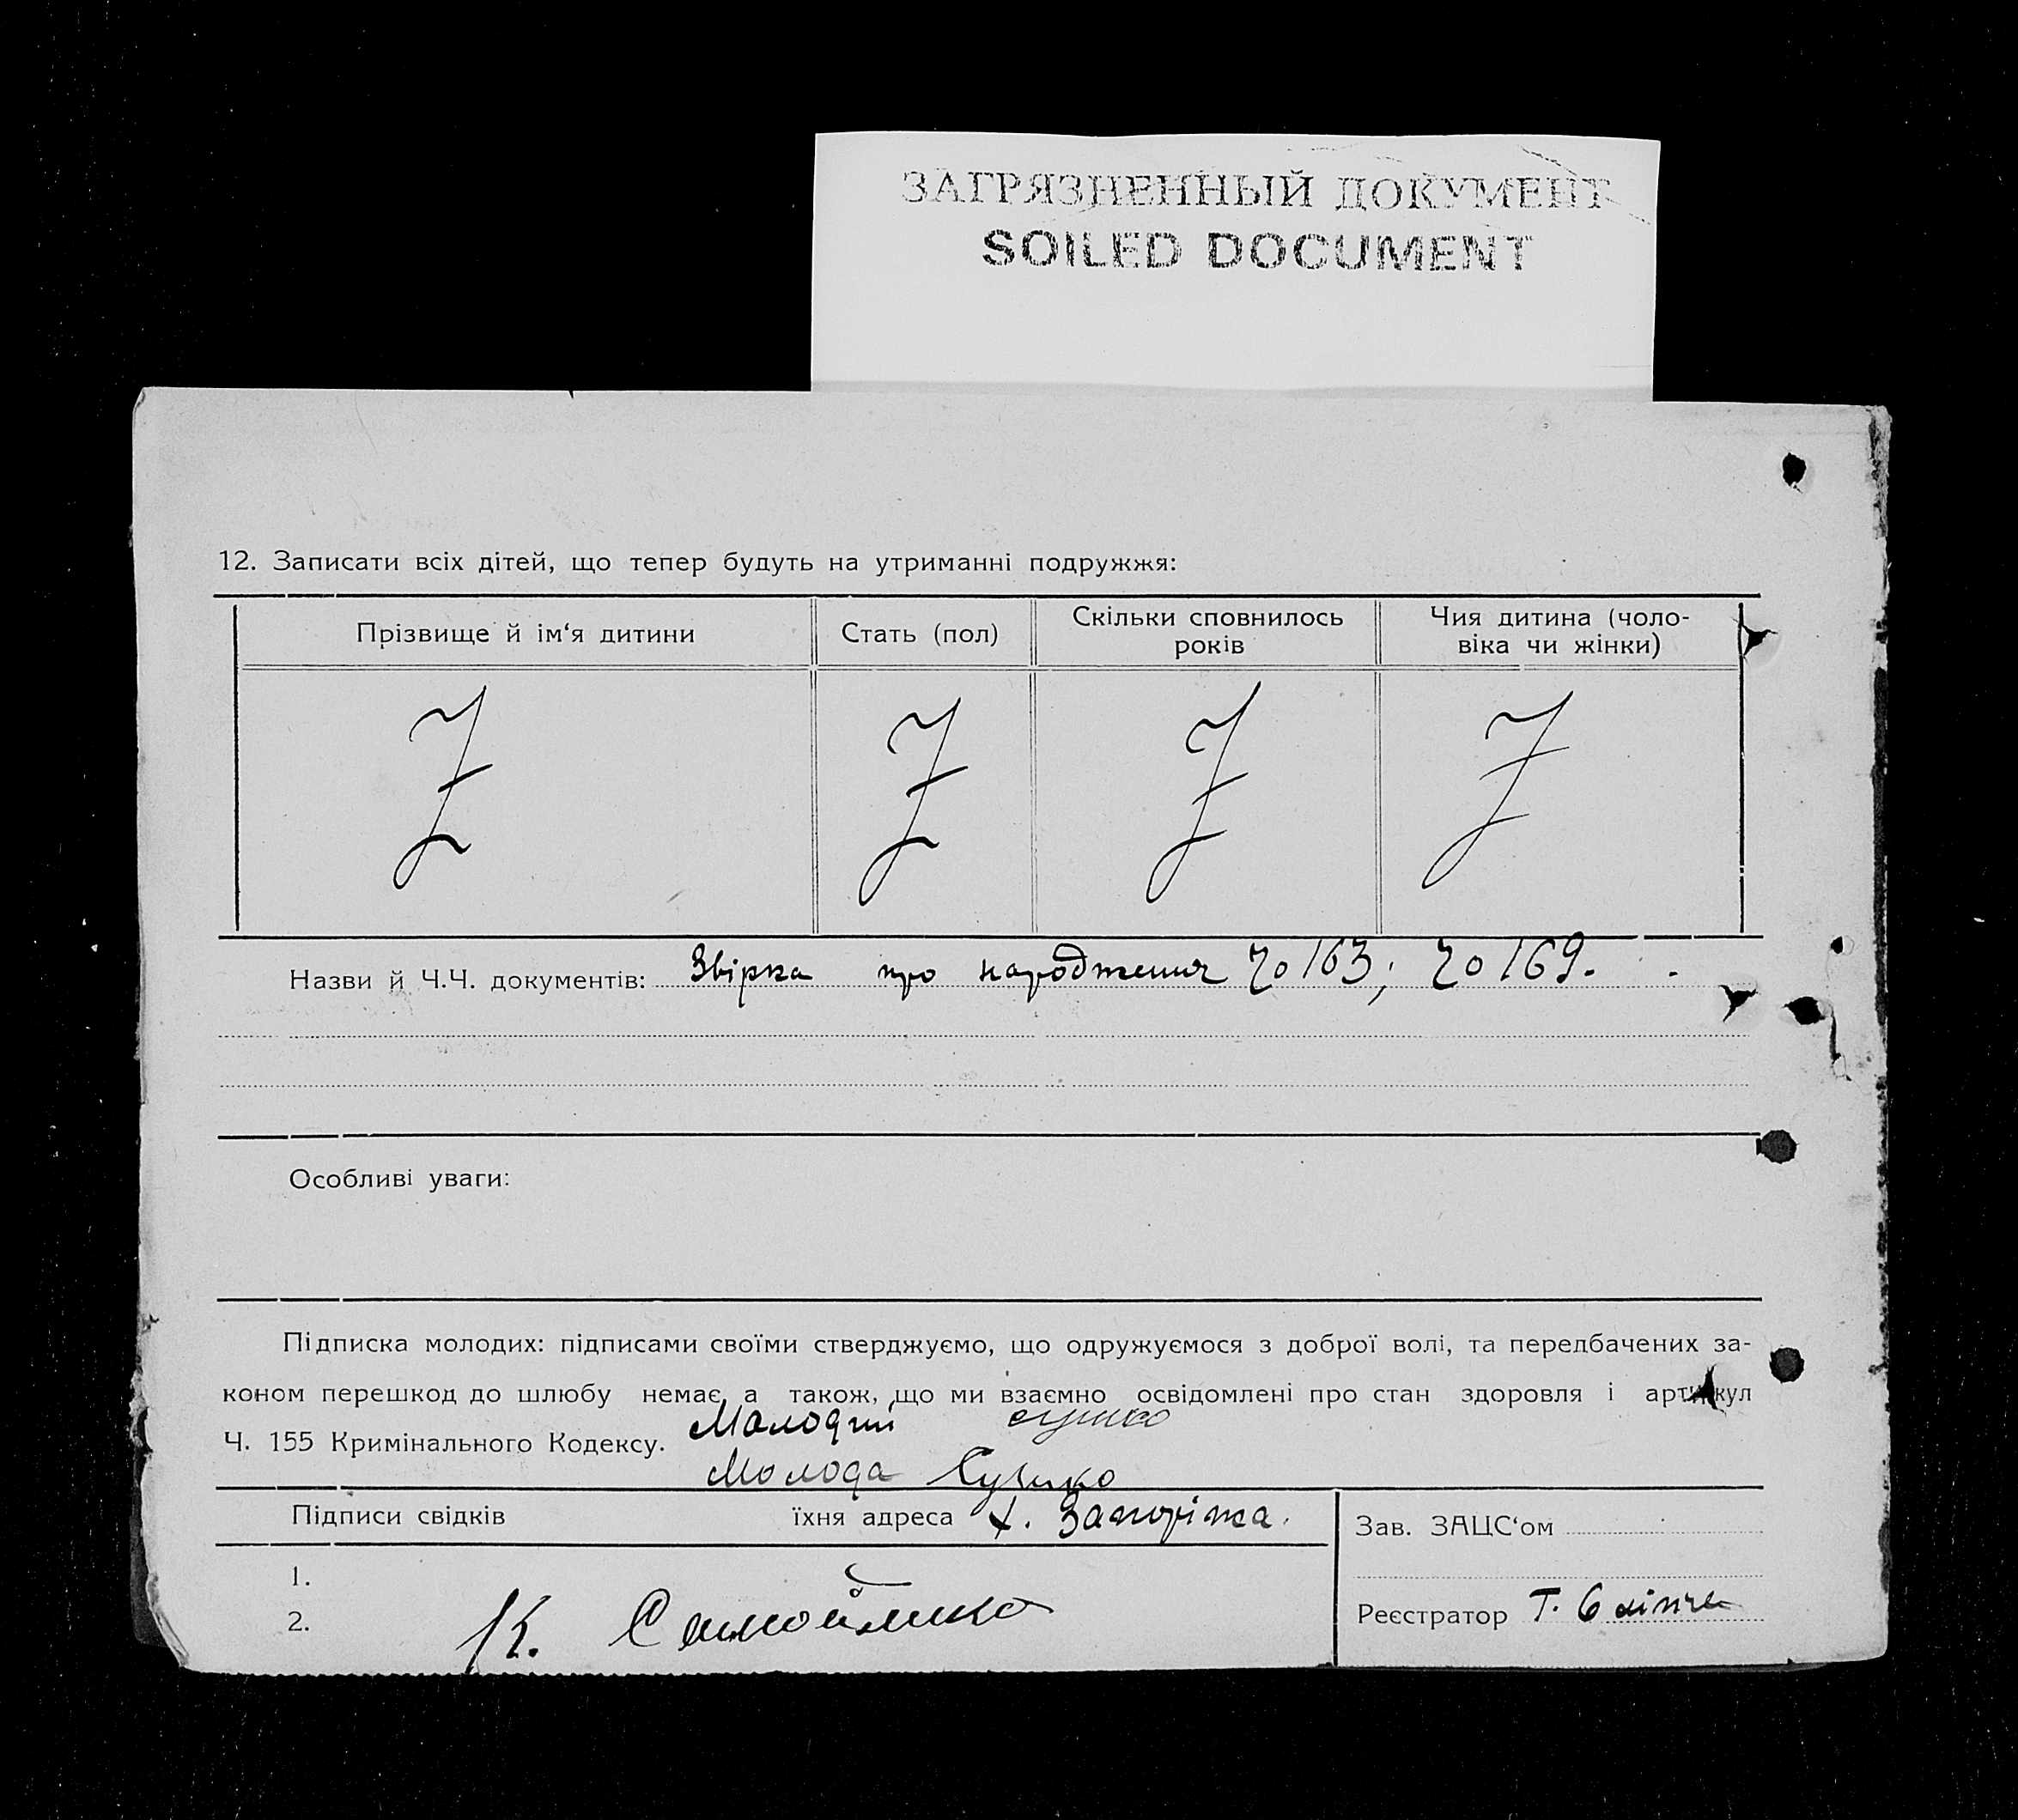 ЗАГРЯЗНЕННЫЙ ДОКУМЕНТ
SOILED DOCUMENT
12. Записати всіх дітей, що тепер будуть на утриманні подружжя:
Прізвище й ім‘я дитини
Стать (пол)
Скільки сповнилось
років
Чия дитина (чоло-
віка чи жінки)
Z Z Z Z
Назви й Ч.Ч. документів: Звірка про народження 163; 169.
Особливі уваги:
Підписка молодих: підписами своїми стверджуємо, що одружуємося з доброї волі, та передбачених за-
коном перешкод до шлюбу немає, а також, що ми взаємно освідомлені про стан здоровля і артикул
Ч. 155 Кримінального Кодексу. Молодий
Молода
Підписи свідків їхня адреса х. Запоріжа.
1.
2. К. Самойленко
Зав. ЗАЦС‘ом
Реєстратор Т.